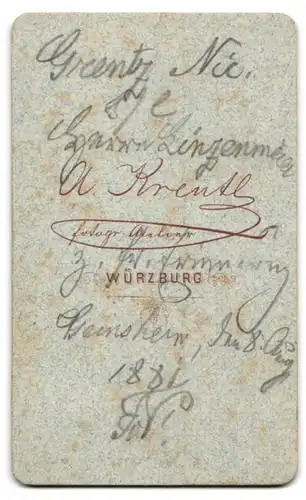 Greentz Nic.
s/e
Herrn Linzenmeier
A. Kreutl
fotogr. Atelier
z. Erinnerung
WÜRZBURG
Geinsheim, den 8. Aug
1881